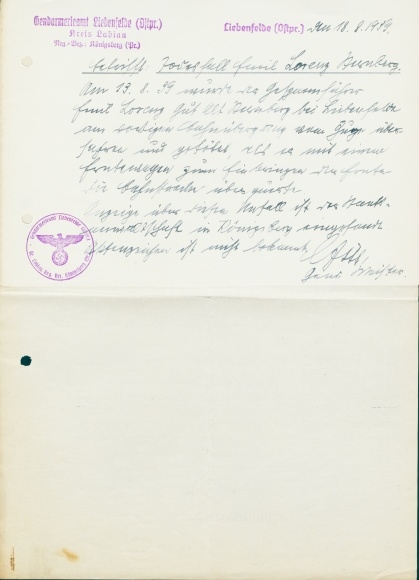 Gendarmerieamt Liebenfelde (Ostpr.)
Kreis Labiau
Reg.-Bez.: Königsberg (Pr.)
Liebenfelde (Ostpr.) den 18. 8. 1939.
Betrifft Todesfall Emil Lorenz Sternberg.
Am 13. 8. 39 wurde der Gespannführer
Emil Lorenz Gut Alt Sternberg bei Liebenfelde
am Bahnübergang vom Zuge über-
fahren und getötet, als er mit einem
Erntewagen zum Einbringen der Ernte
die überquerte.
Anzeige über diesen Unfall ist der Staats-
anwaltschaft in Königsberg eingesandt
Aktenzeichen ist nicht bekannt.
Gend. Meister.